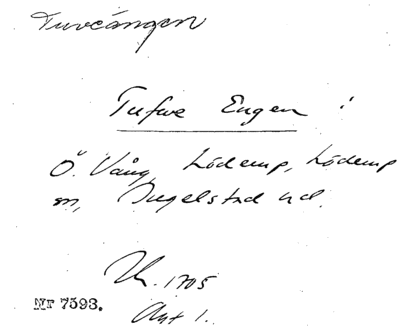 Tuveängen
Tufwe Engen :
Ö. Vång, Lödemp, Lödemp
sn, Ingelstad hd.
Lk. 1705
Akt 1.
Nr 7593.